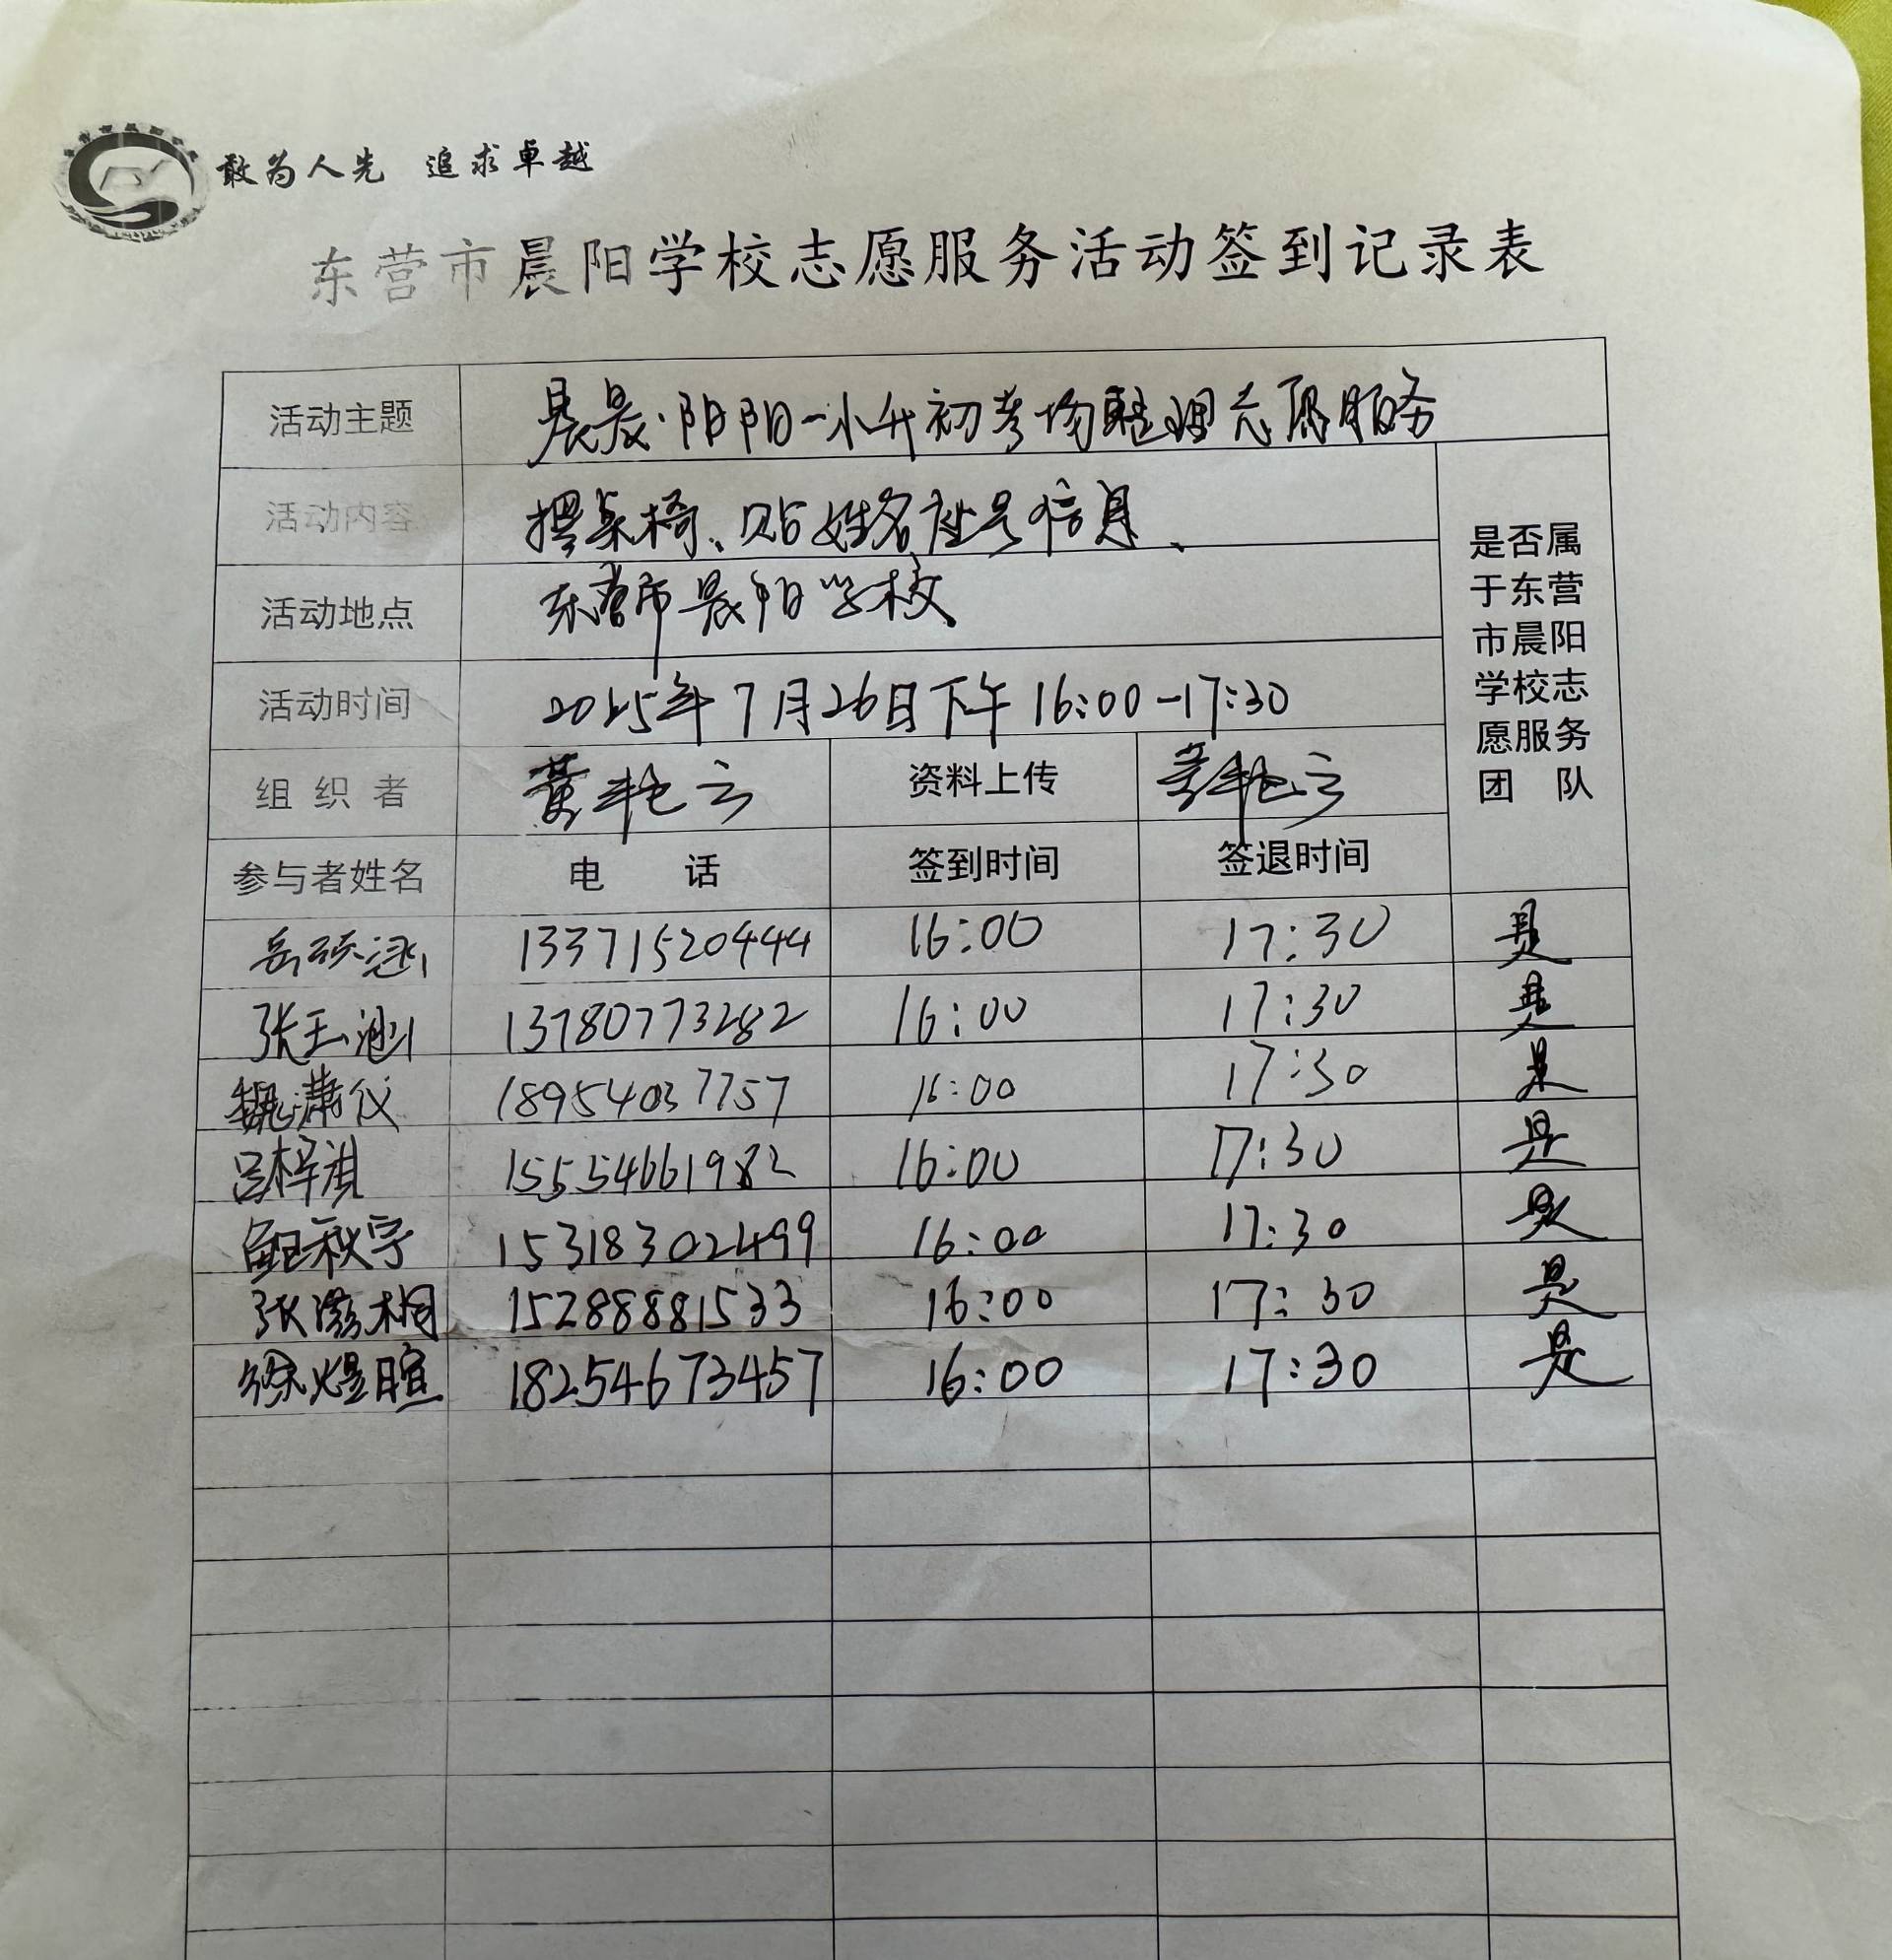 敢为人先 追求卓越
东营市晨阳学校志愿服务活动签到记录表
活动主题 晨晨·阳阳—小升初考场整理志愿服务
活动内容 摆桌椅、贴姓名座号信息、
活动地点 东营市晨阳学校
活动时间 2025年7月26日下午16:00-17:30
是否属
于东营
市晨阳
学校志
愿服务
团 队
组织者 黄艳云 资料上传 黄艳云
参与者姓名 电 话 签到时间 签退时间
岳硕涵 13371520444 16:00 17:30 是
张玉涵 13780773282 16:00 17:30 是
魏潇仪 18954037757 16:00 17:30 是
吕梓淇 15554661982 16:00 17:30 是
鲍秋宇 15318302499 16:00 17:30 是
张滋桐 15288881533 16:00 17:30 是
徐煜暄 18254673457 16:00 17:30 是